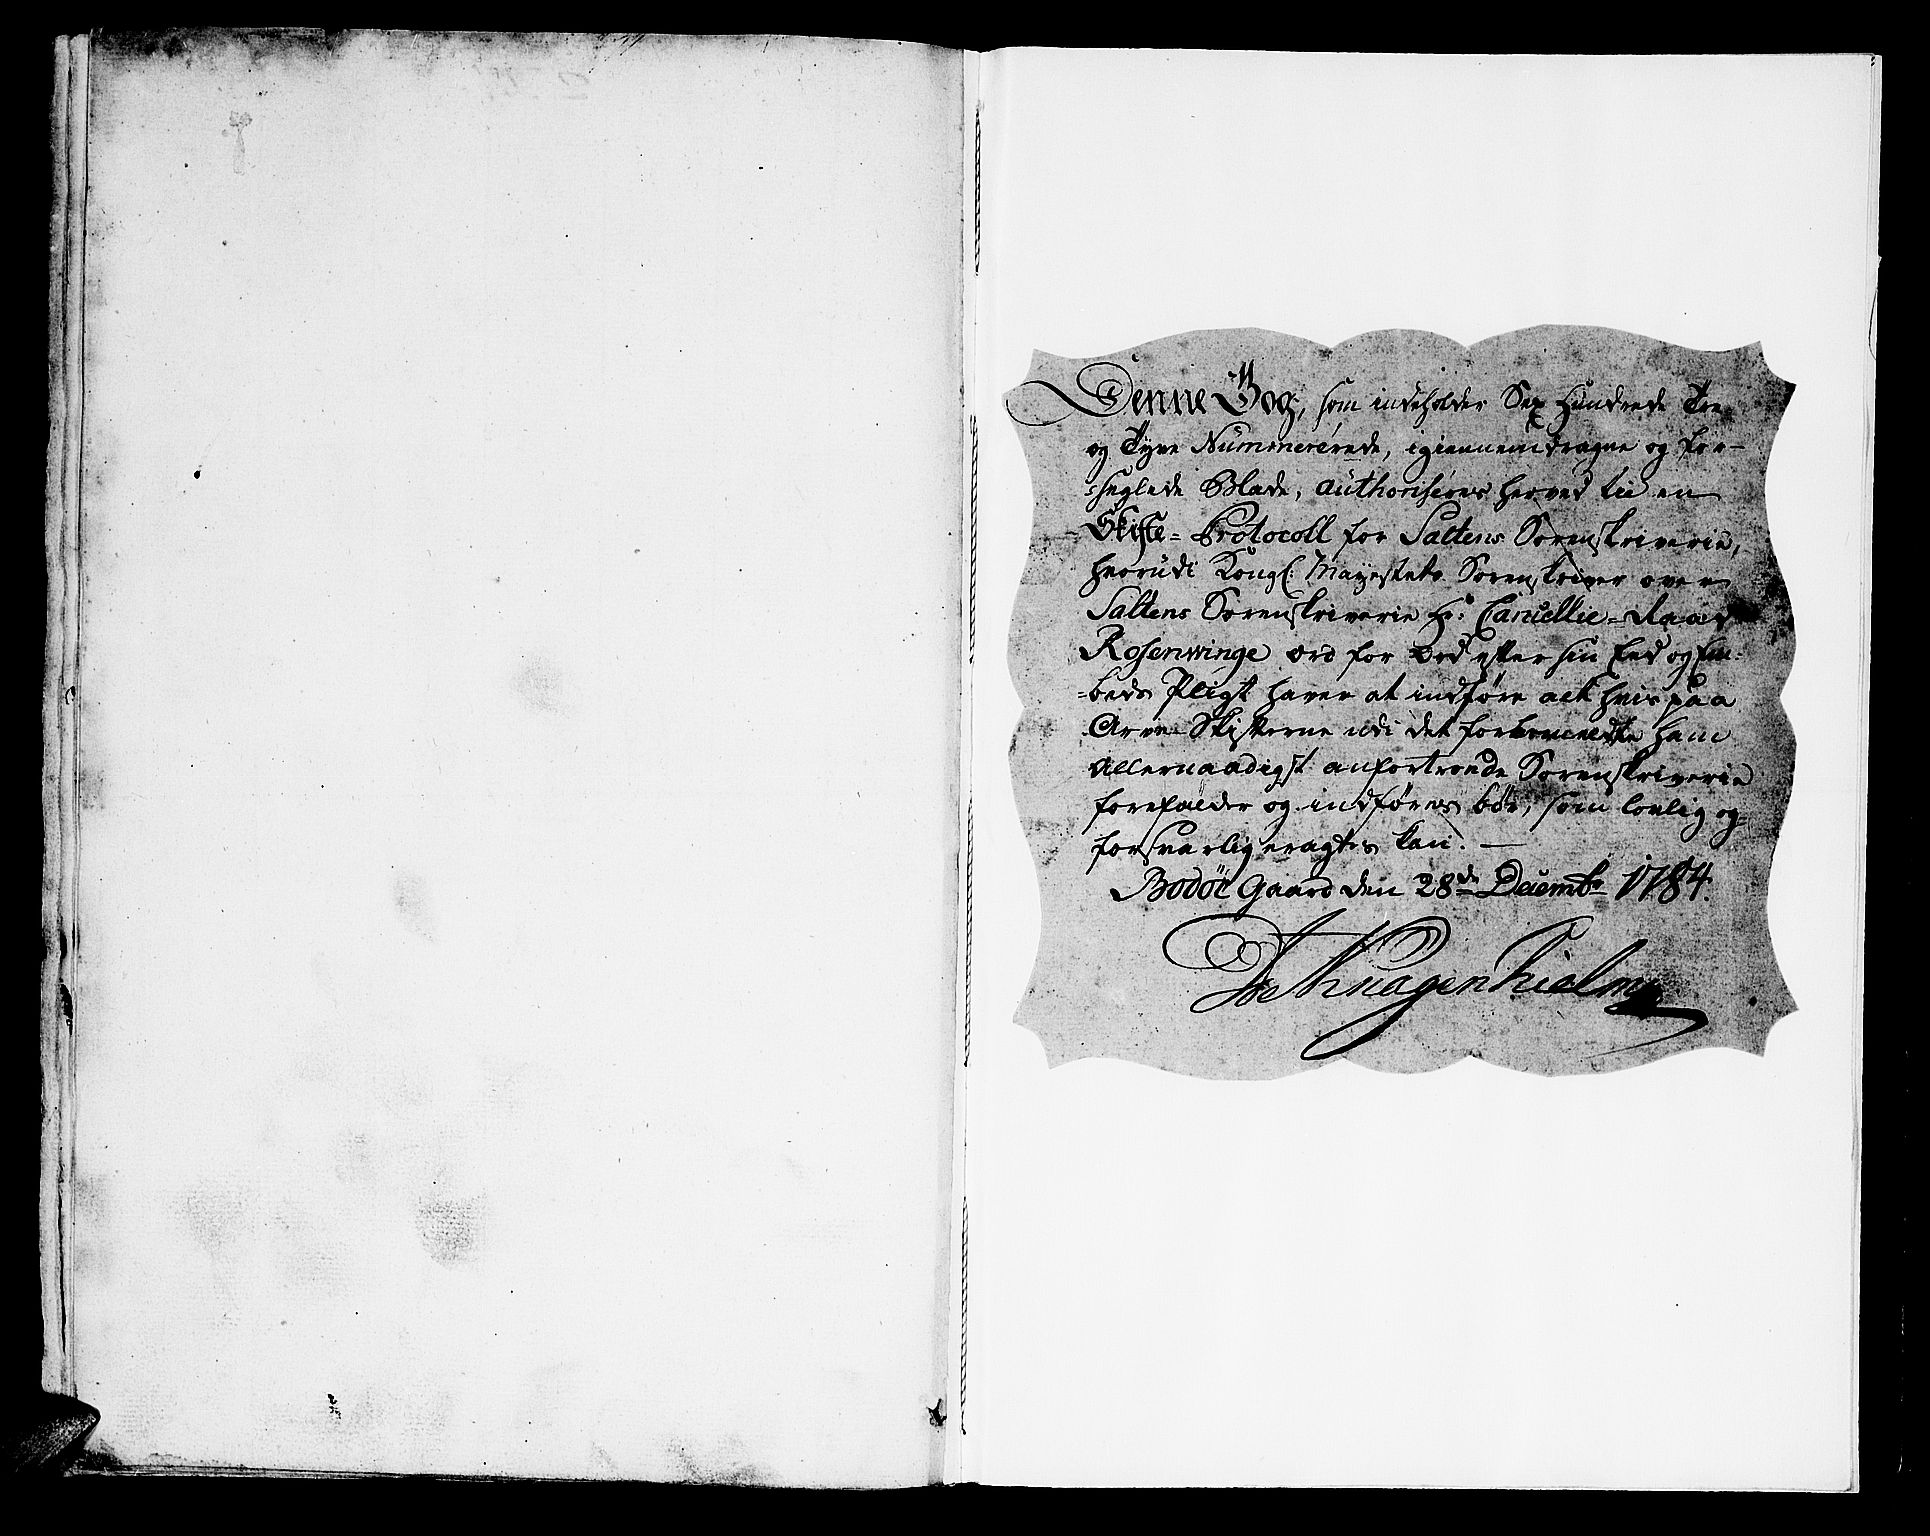 Denne Bog, som indeholder Sex Hundrede Tre
og Tyve Nummererede, igiennemdragne og for-
=seglede Blade, authoriseres herved til en
Skifte=Protocoll for Saltens Sorenskriverie,
hvorudi Kongl: Mayestets Sorenskriver over
Saltens Sorenskriverie Hr: Cancellie=Raad
Rosenvinge ord for ord efter sin Eed og Em-
=beds Pligt haver at indføre alt hvis paa
Arve-Skifterne udi det forbemeldte ham
Allernaadigst anfortroede Sorenskriverie
forefalder og indføres bør, som lovlig og
forsvarlig eragtes kan. —
Bodöe Gaard den 28de Decembr 1784.
Hagenskielm